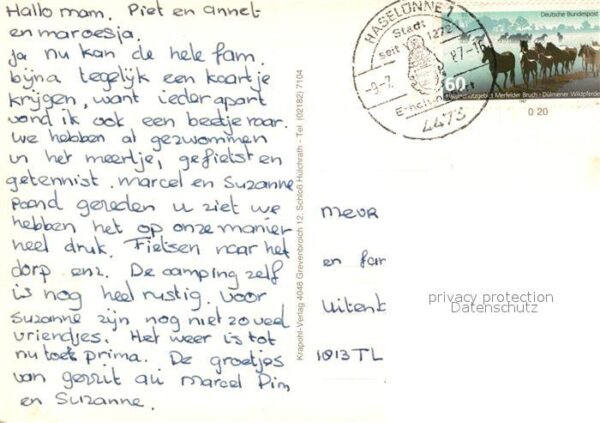 Hallo mam. Piet en annet
en maroesja.
ja nu kan de hele fam.
bijna tegelijk een kaartje
krijgen, want ieder apart
vond ik ook een beetje raar.
we hebben al gezwommen
in het meertje, gefietst en
getennist. marcel en Suzanne
paard gereden u ziet we
hebben het op onze manier
heel druk. Fietsen naar het
dorp enz. De camping zelf
is nog heel rustig. voor
Suzanne zijn nog niet zoveel
vriendjes. Het weer is tot
nu toe prima. De groetjes
van gerrit ali marcel Pim
en Suzanne.
Krapohl-Verlag 4048 Grevenbroich 12, Schloß Hülchrath - Tel. (02182) 7104
HASELÜNNE 1
Stadt
seit 1272
-9.-7. 87-16
4473
Deutsche Bundespost
60
Naturschutzgebiet Merfelder Bruch - Dülmener Wildpferde
0 20
meur
en far
uitent
1013TL
privacy protection
Datenschutz